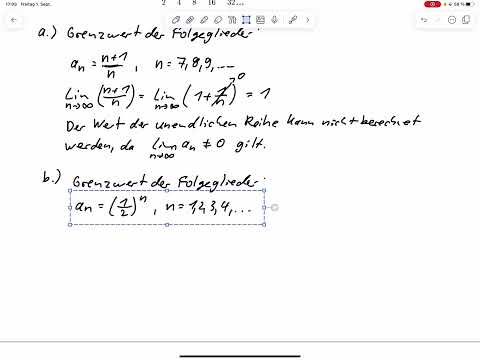 17:03 Freitag 1. Sept. 58 %
2 4 8 16 32...
a.) Grenzwert der Folgeglieder:
a_n = (n+1)/n , n = 7,8,9,...
Lim n→∞ ((n+1)/n) = Lim n→∞ (1 + 1/n) = 1 0
Der Wert der unendlichen Reihe kann nicht berechnet
werden, da Lim n→∞ a_n ≠ 0 gilt.
b.) Grenzwert der Folgeglieder:
a_n = (1/2)^n , n = 1,2,3,4,...